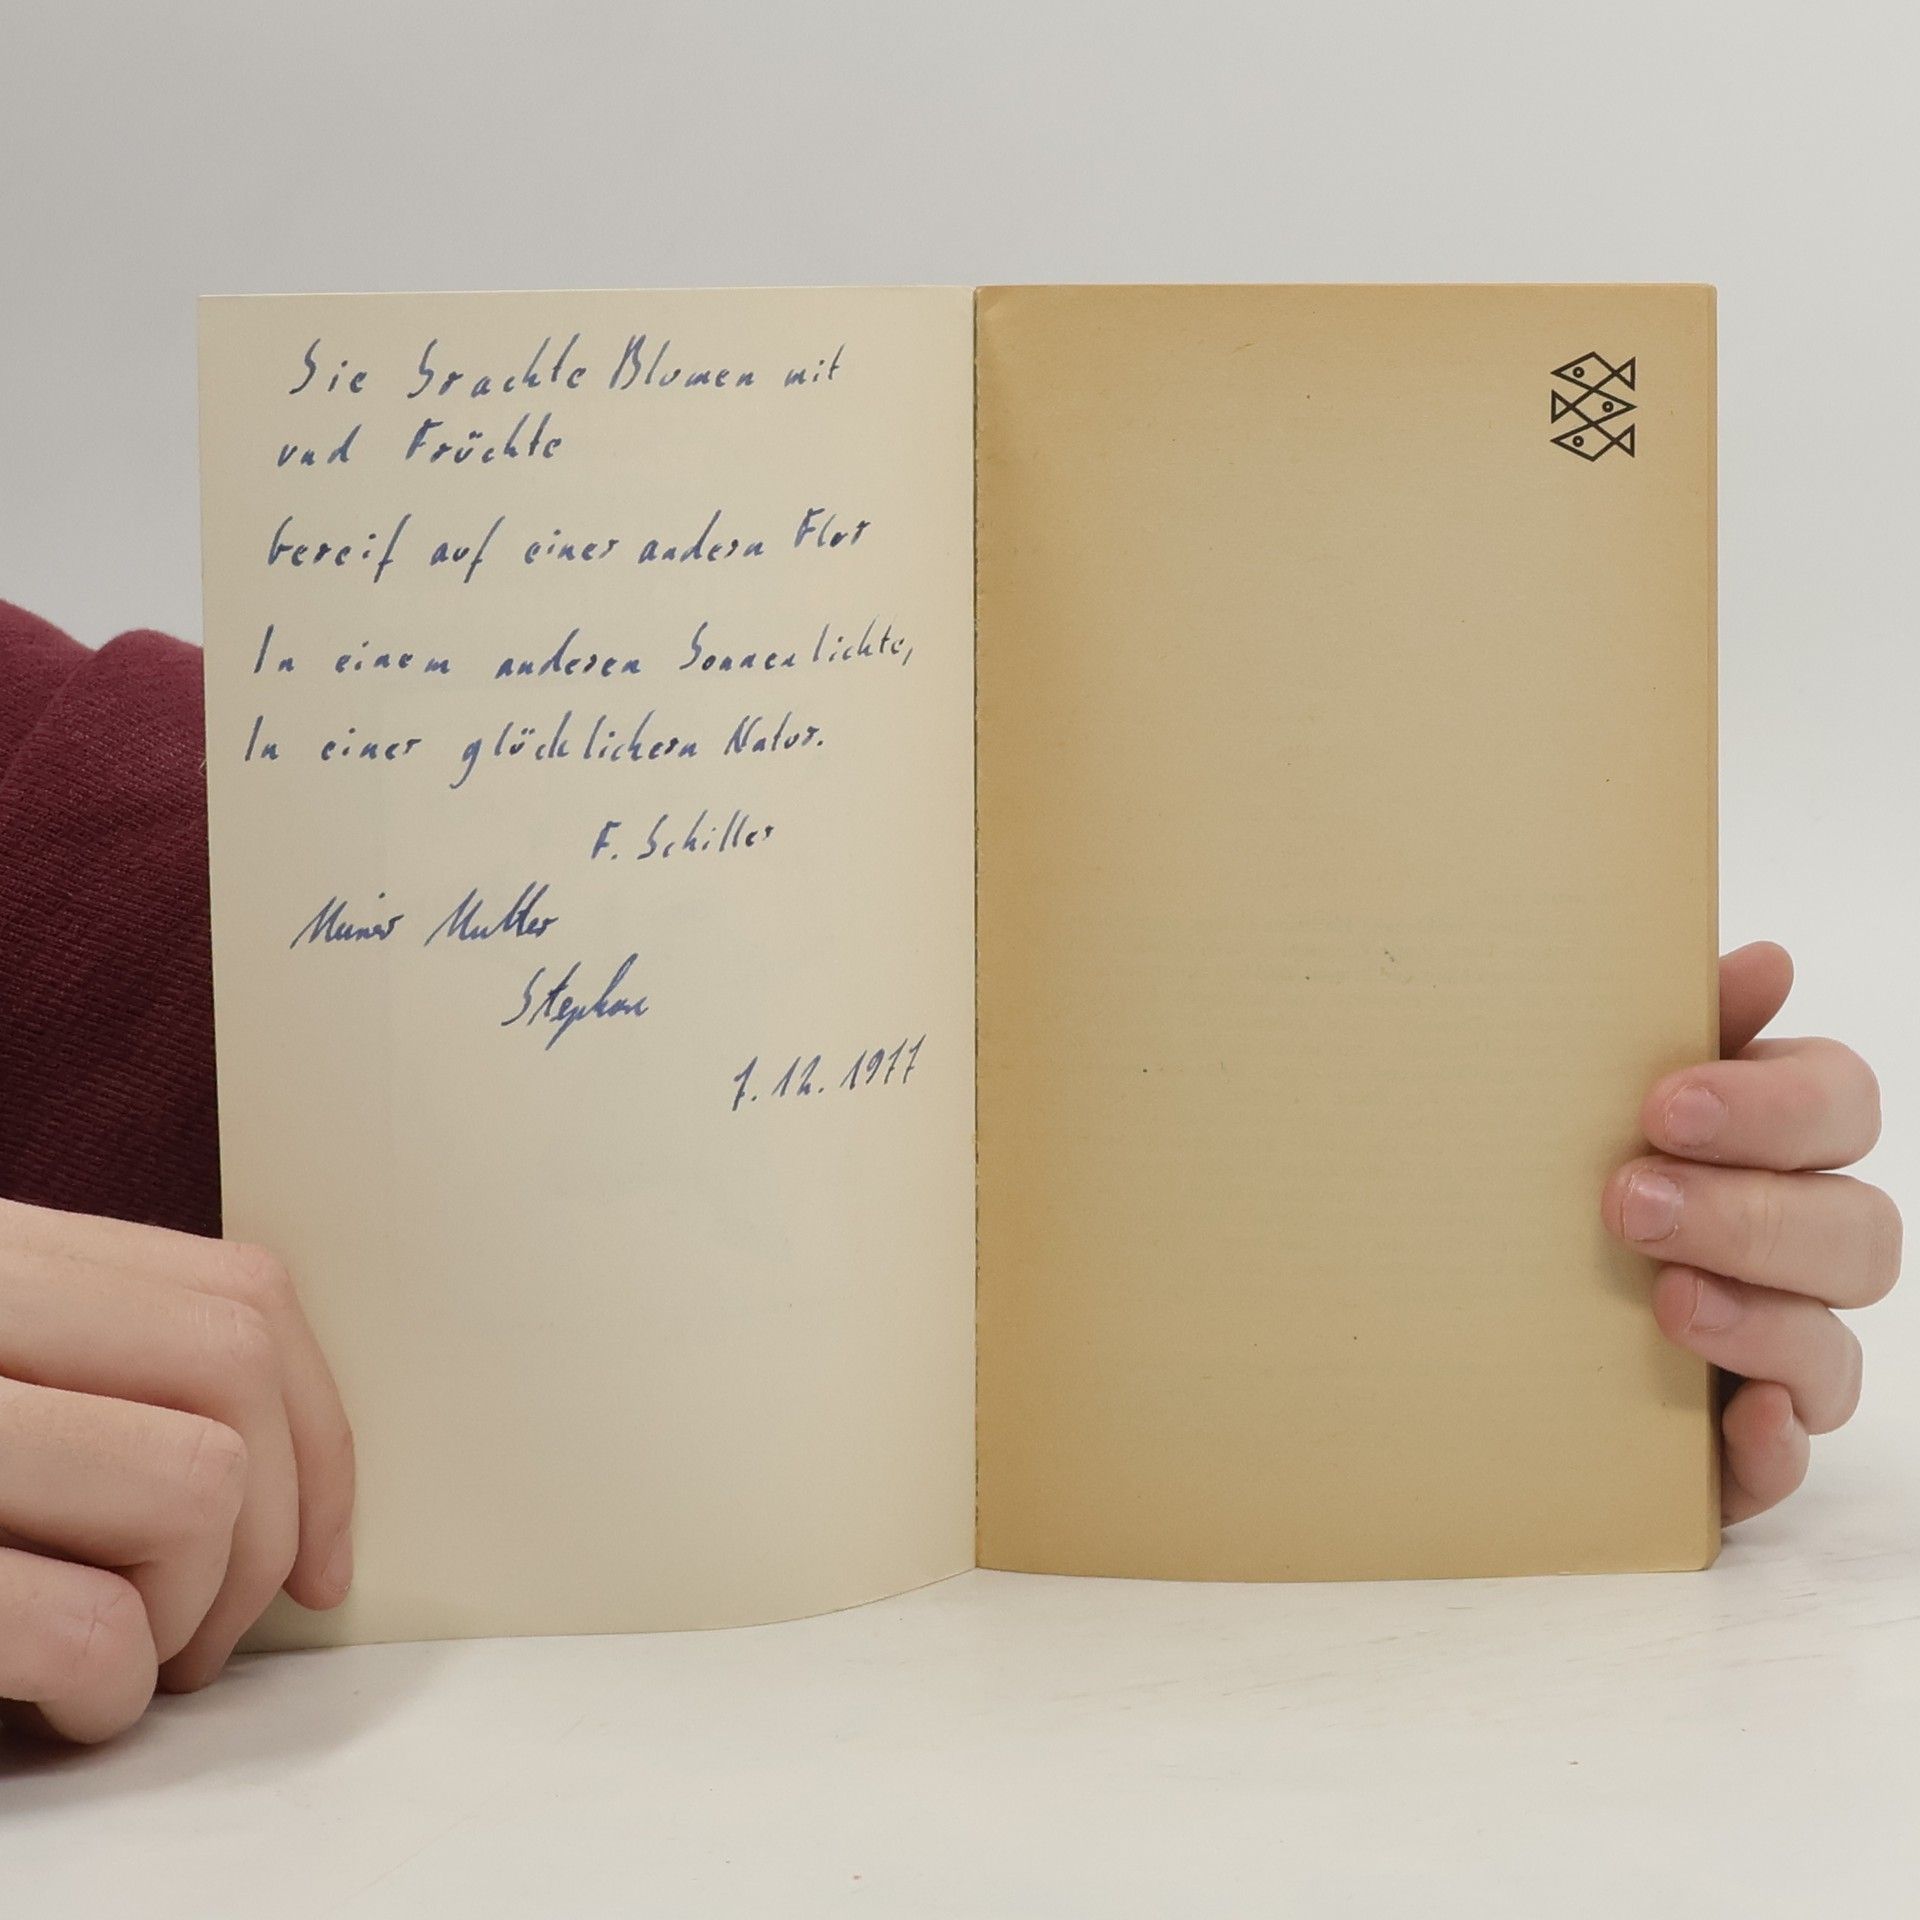 Sie brachte Blumen mit
und Früchte
Gereift auf einer andern Flur
In einem anderen Sonnenlichte,
In einer glücklichern Natur.
F. Schiller
Meiner Mutter
Stephan
7.12.1977